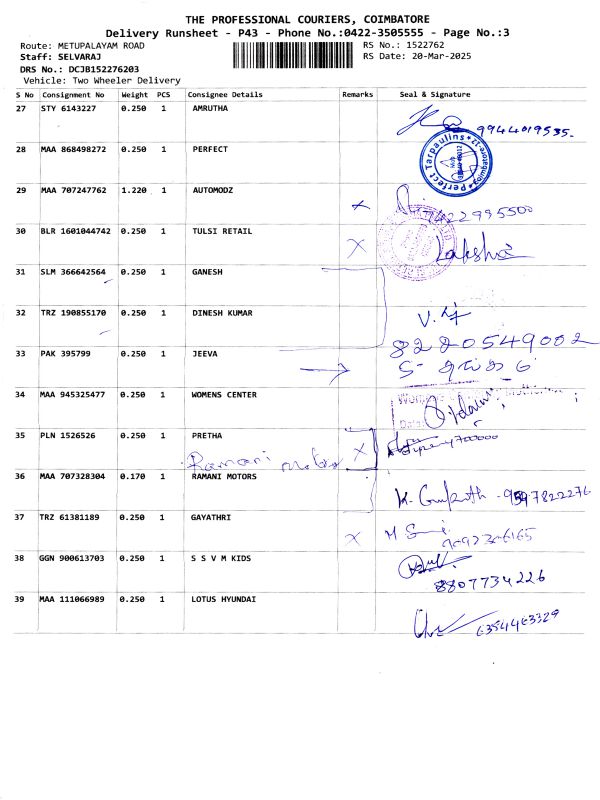 THE PROFESSIONAL COURIERS, COIMBATORE
Delivery Runsheet - P43 - Phone No.:0422-3505555 - Page No.:3
Route: METUPALAYAM ROAD RS No.: 1522762
Staff: SELVARAJ RS Date: 20-Mar-2025
DRS No.: DCJB152276203
Vehicle: Two Wheeler Delivery
S No Consignment No Weight PCS Consignee Details Remarks Seal & Signature
27 STY 6143227 0.250 1 AMRUTHA
9944019535.
28 MAA 868498272 0.250 1 PERFECT
Perfect Tarpaulins
29 MAA 707247762 1.220 1 AUTOMODZ
x
30 BLR 1601044742 0.250 1 TULSI RETAIL
x
31 SLM 366642564 0.250 1 GANESH
32 TRZ 190855170 0.250 1 DINESH KUMAR
8220549002
33 PAK 395799 0.250 1 JEEVA
34 MAA 945325477 0.250 1 WOMENS CENTER
35 PLN 1526526 0.250 1 PRETHA
Ramani Motors x
36 MAA 707328304 0.170 1 RAMANI MOTORS
37 TRZ 61381189 0.250 1 GAYATHRI
x 9092306165
38 GGN 900613703 0.250 1 S S V M KIDS
8807734226
39 MAA 111066989 0.250 1 LOTUS HYUNDAI
6354463329